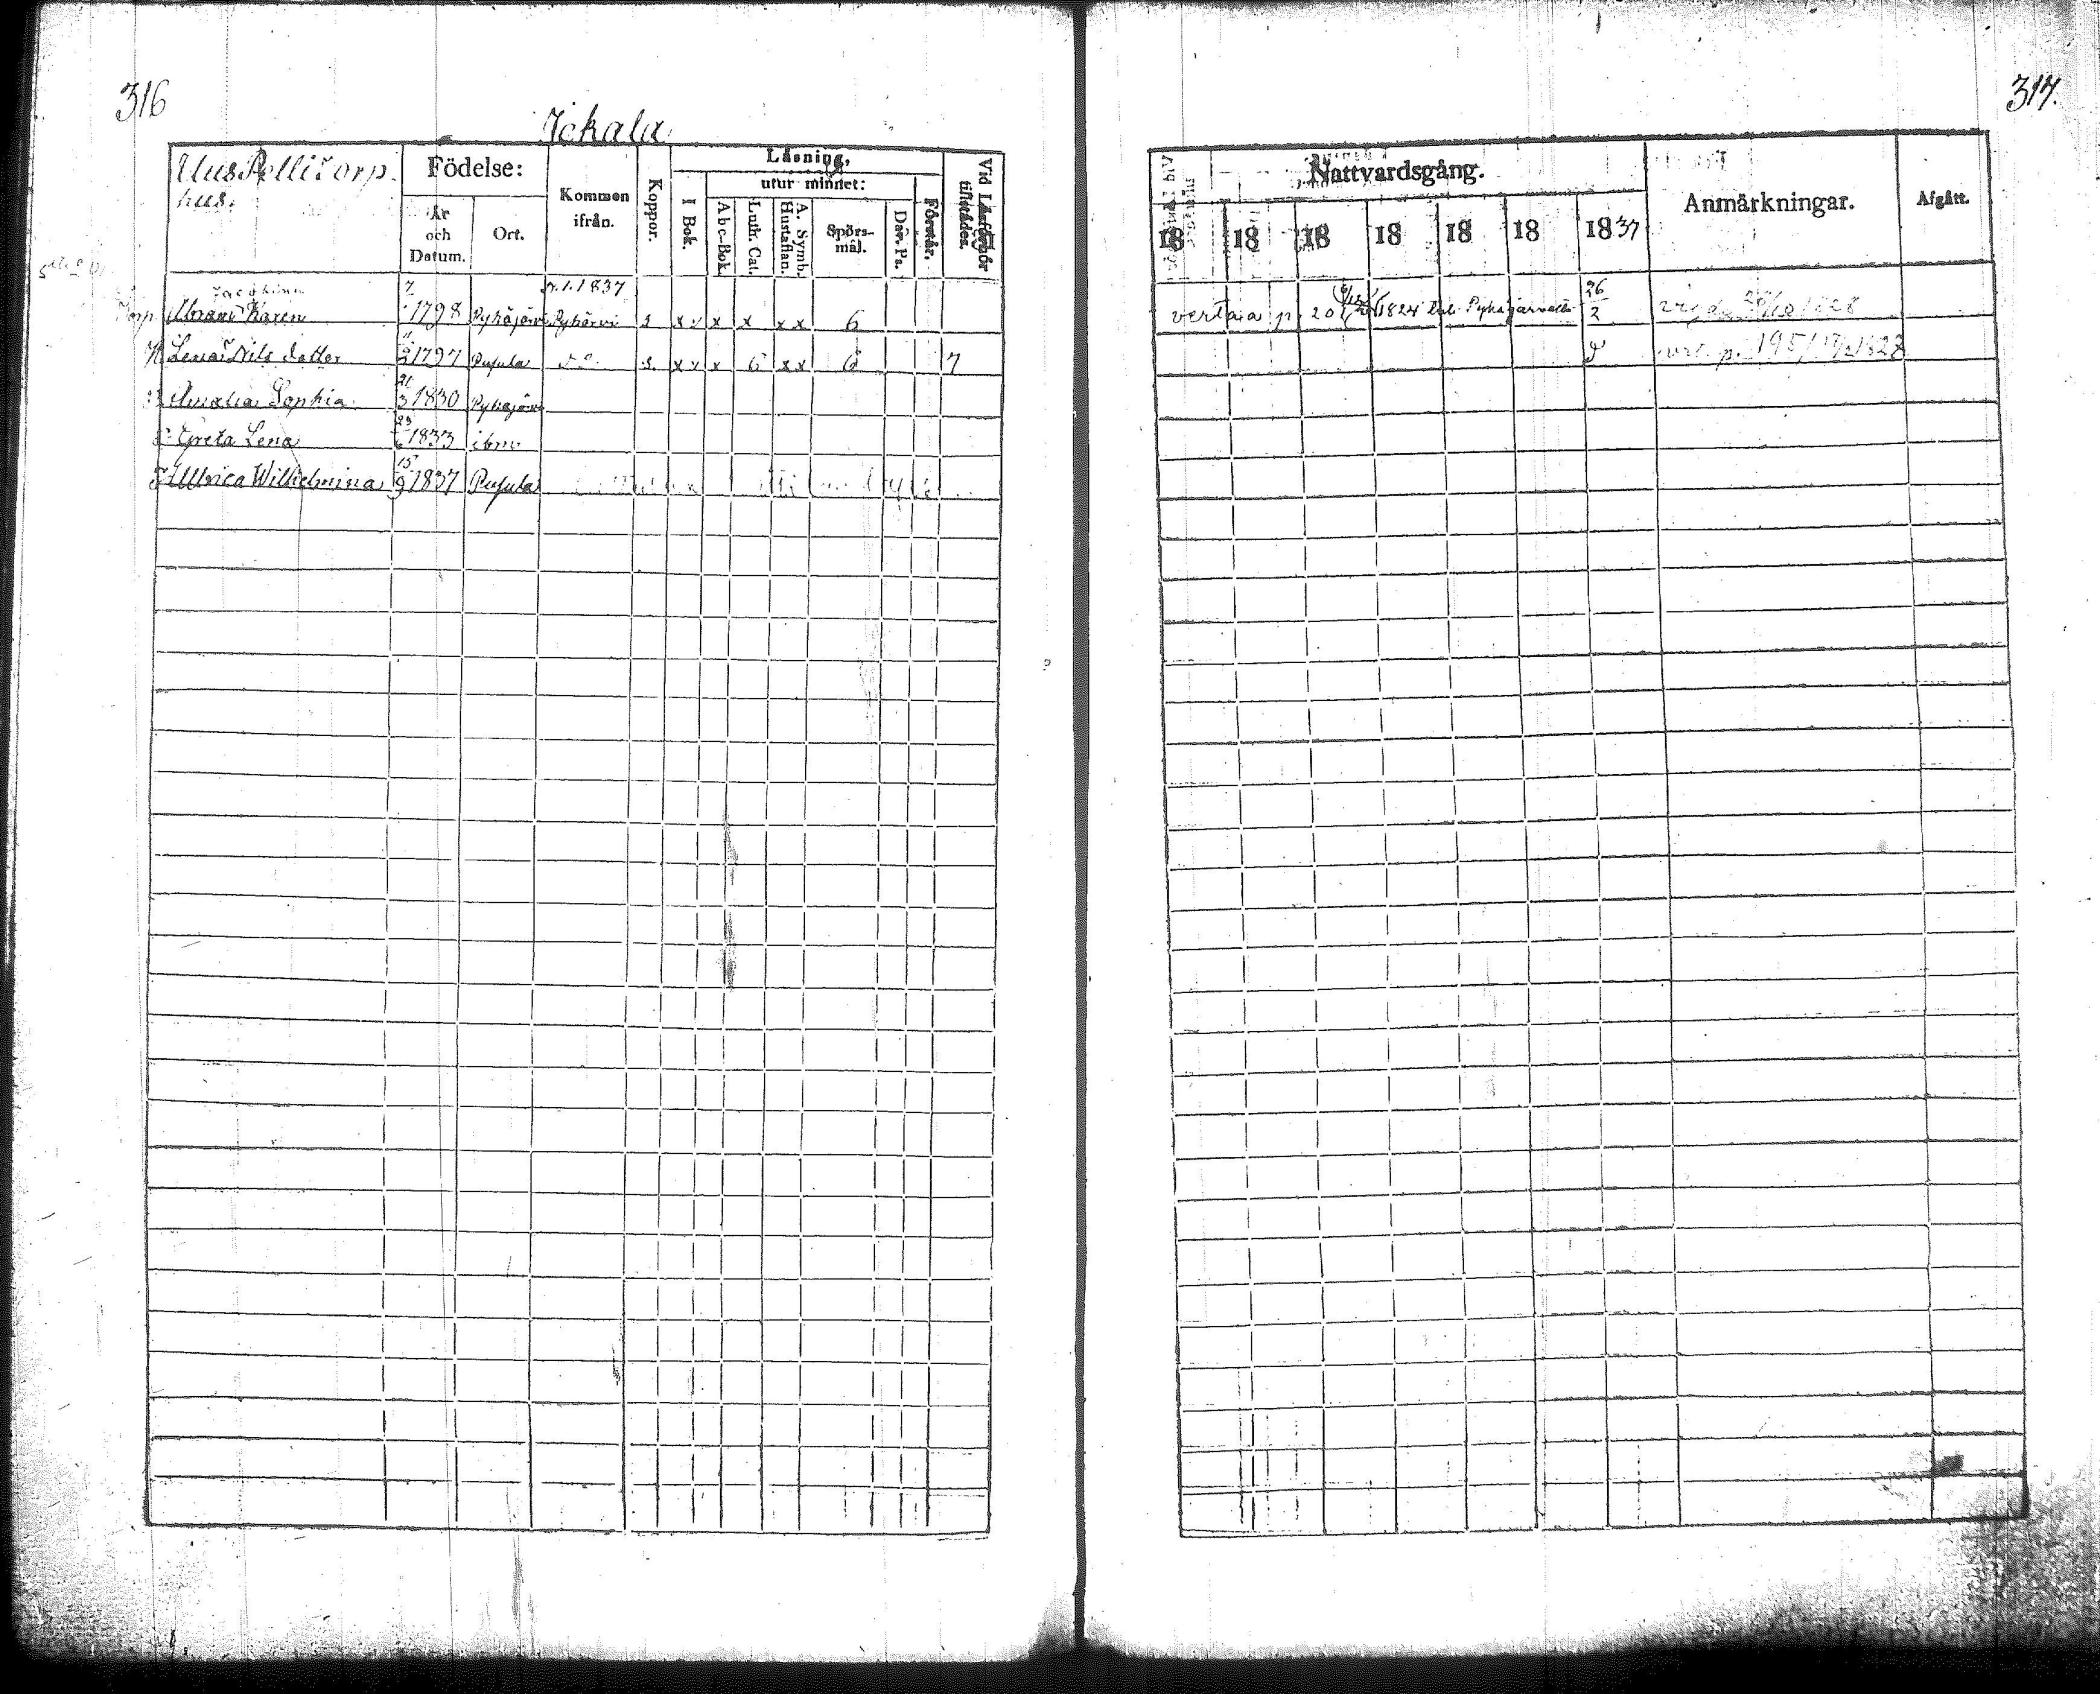 316
Jokala
Uus Pelli Torp.
hus.
Födelse:
År och Datum.
Ort.
Kommen ifrån.
Koppor.
Läsning,
I Bok.
utur minnet:
Abc-Bok.
Luth. Cat.
A. Symb. Hustaflan.
Spörs-mål.
Dav. Ps.
Förstår.
Vid Läseförhör tillstädes.
1837
Torp Abram Karen 7 1798 Pyhäjärvi Pyhärvi s x v x x x x 6
H Lena Nils dotter 11 2 1797 Pufula Do s. x v x 6 x x 6 7
Amalia Sophia 21 3 1830 Pyhäjärvi
Greta Lena 23 6 1833 ibm
Ulrica Wilhelmina 15 9 1837 Pufula
317.
Nattvardsgång.
18 18 18 18 18 18 1837
Anmärkningar.
Afgått.
vertaa p. 201 1824 Pyhäjärvellä 26 2 vigd 28/12 1828
D:o p. 195/ 1828